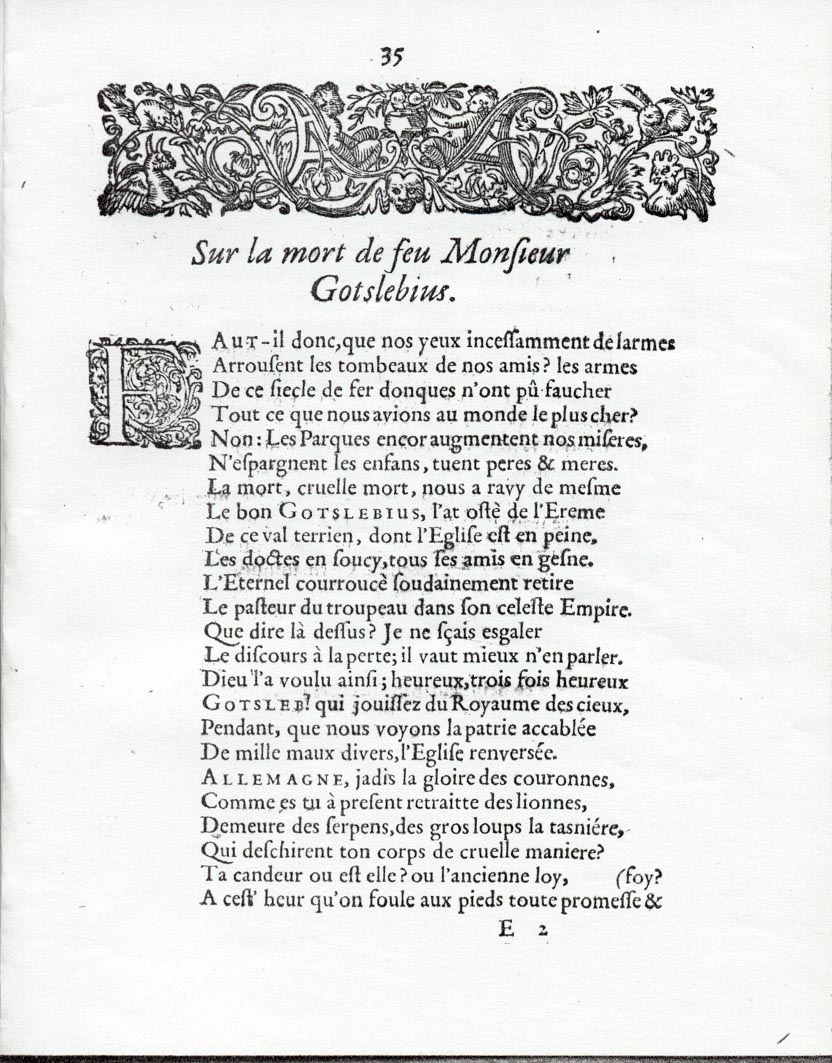 35
Sur la mort de feu Monſieur
Gotslebius.
FAUT-il donc, que nos yeux inceſſamment de larmes
Arrouſent les tombeaux de nos amis? les armes
De ce ſiecle de fer donques n'ont pû faucher
Tout ce que nous avions au monde le plus cher?
Non: Les Parques encor augmentent nos miſeres,
N'eſpargnent les enfans, tuent peres & meres.
La mort, cruelle mort, nous a ravy de meſme
Le bon GOTSLEBIUS, l'at oſtè de l'Ereme
De ce val terrien, dont l'Egliſe eſt en peine,
Les doctes en ſoucy, tous ſes amis en geſne.
L'Eternel courroucè ſoudainement retire
Le paſteur du troupeau dans ſon celeſte Empire.
Que dire là deſſus? Je ne ſçais esgaler
Le diſcours à la perte; il vaut mieux n'en parler.
Dieu l'a voulu ainſi; heureux, trois fois heureux
GOTSLEB! qui jouiſſez du Royaume des cieux,
Pendant, que nous voyons la patrie accablée
De mille maux divers, l'Egliſe renverſée.
ALLEMAGNE, jadis la gloire des couronnes,
Comme es tu à preſent retraitte des lionnes,
Demeure des ſerpens, des gros loups la tasniére,
Qui deſchirent ton corps de cruelle maniere?
Ta candeur ou eſt elle? ou l'ancienne loy, (foy?
A ceſt' heur qu'on foule aux pieds toute promeſſe &
E 2